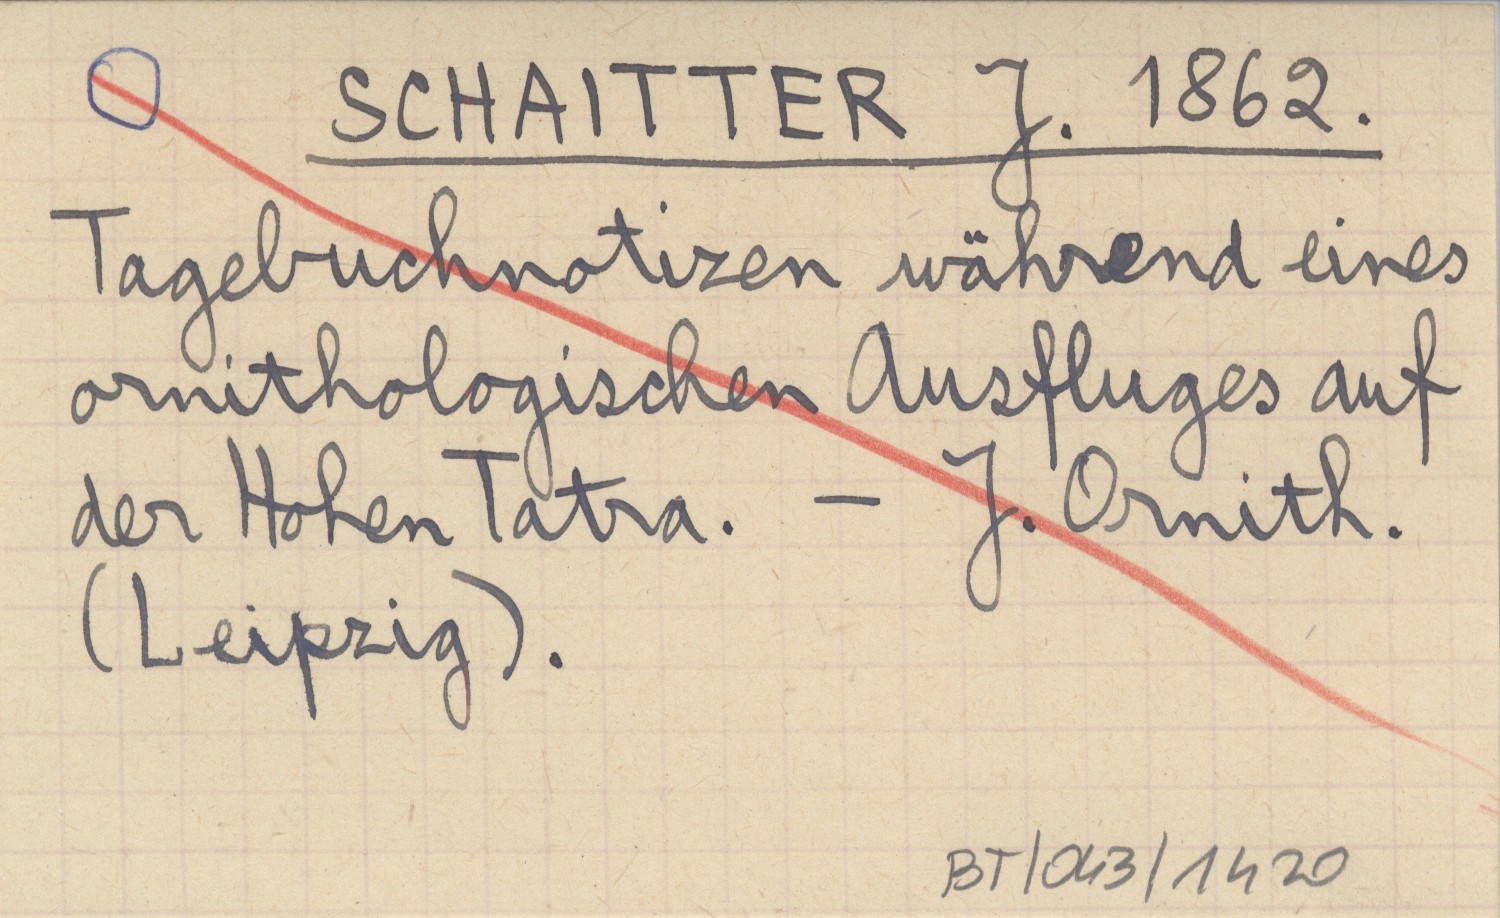 SCHAITTER J. 1862.
Tagebuchnotizen während eines
ornithologischen Ausfluges auf
der Hohen Tatra. – J. Ornith.
(Leipzig).
BT/043/1420